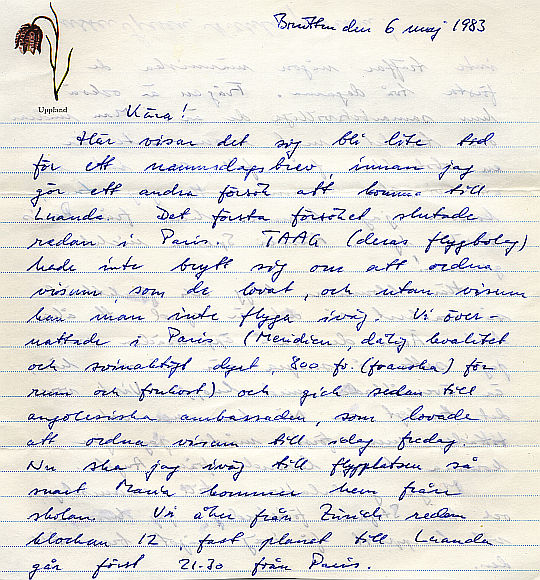 Brutten den 6 maj 1983
Uppland
Kära!
Här visar det sig bli lite tid
för ett namnsdagsbrev, innan jag
gör ett andra försök att komma till
Luanda. Det första försöket slutade
redan i Paris. TAAG (deras flygbolag)
hade inte brytt sig om att ordna
visum, som de lovat, och utan visum
kan man inte flyga iväg. Vi över-
nattade i Paris (Meridien dålig kvalitet
och svinaktigt dyrt, 800 fr. (franska) för
rum och frukost) och gick sedan till
angolesiska ambassaden, som lovade
att ordna visum till idag fredag.
Nu ska jag iväg till flygplatsen så
snart Maria kommer hem från
skolan. Vi åker från Zürich redan
klockan 12, fast planet till Luanda
går först 21.30 från Paris.